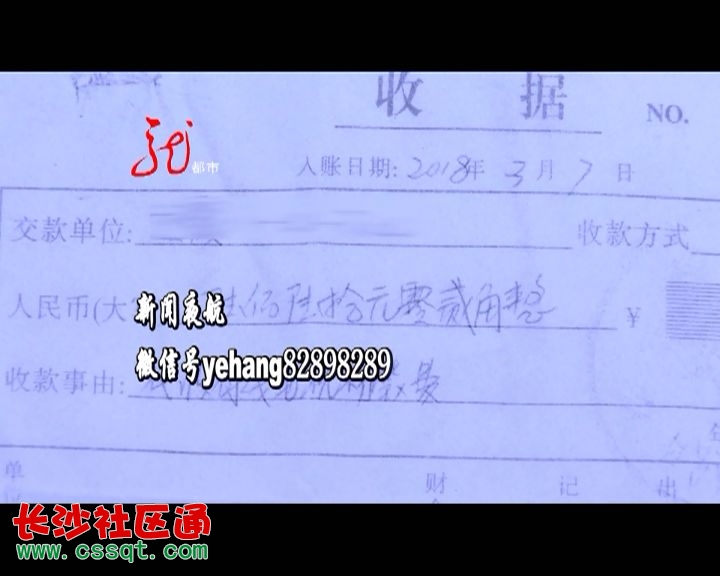 收 据
NO.
龙
都市
入账日期: 2018年 3月 7日
交款单位:
收款方式
人民币(大 陆佰陆拾元零贰角整 ¥
新闻夜航
微信号yehang82898289
收款事由:
单 财 记 出
长沙社区通
www.cssqt.com